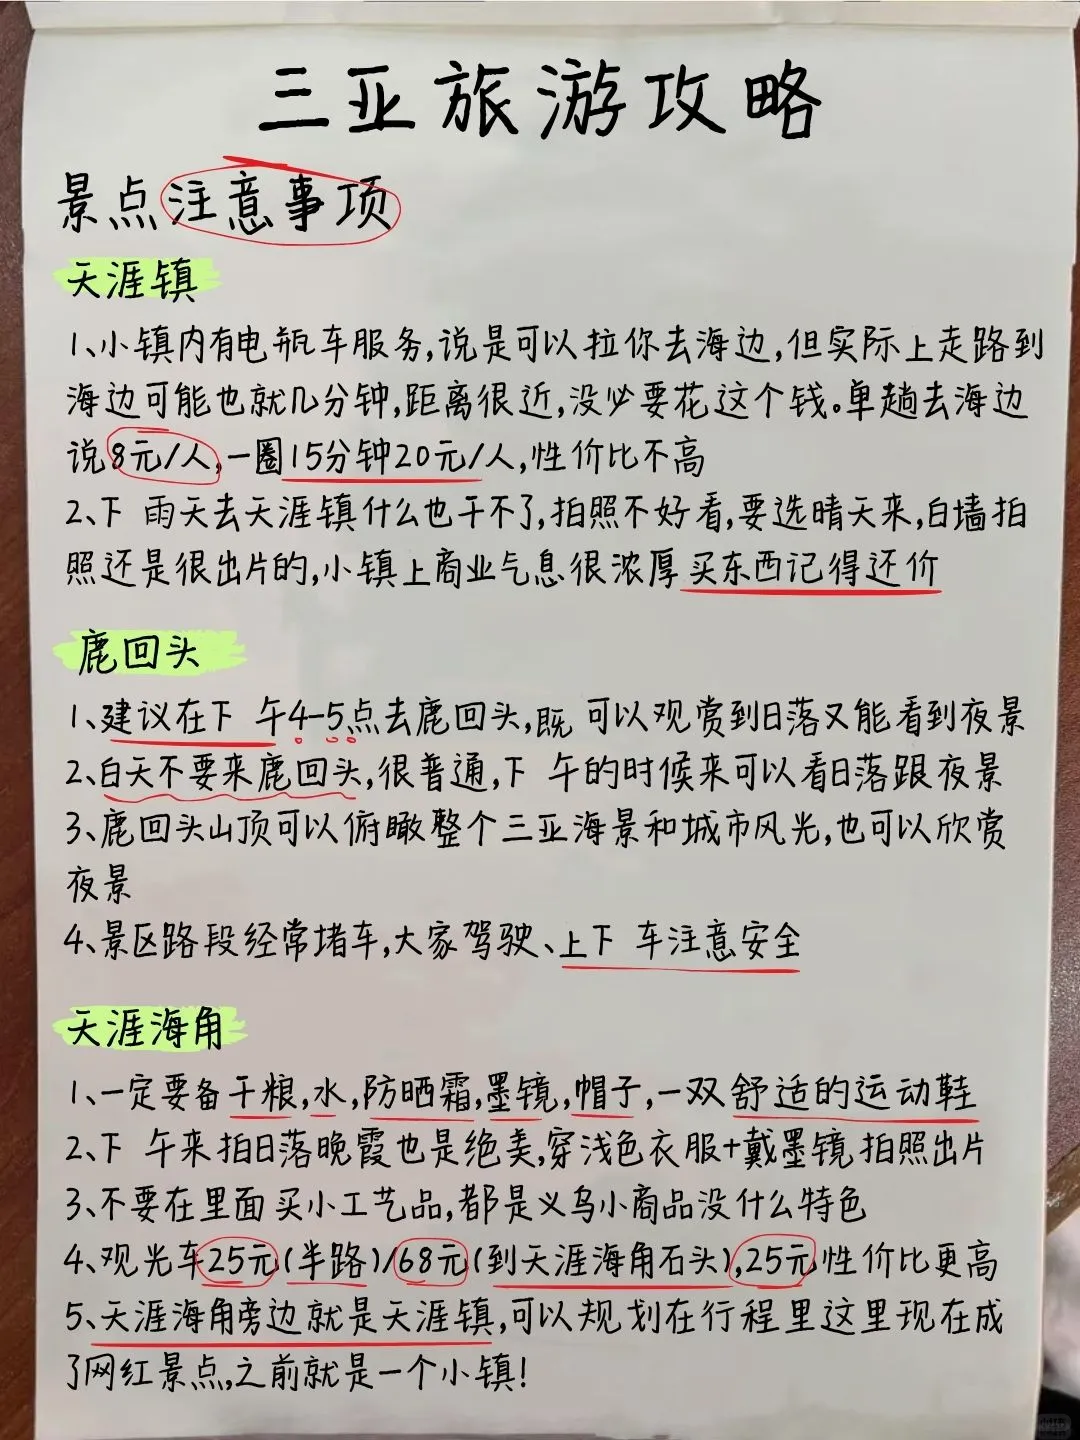 三亚旅游攻略
景点注意事项
天涯镇
1、小镇内有电瓶车服务,说是可以拉你去海边,但实际上走路到
海边可能也就几分钟,距离很近,没必要花这个钱。单趟去海边
说8元/人,一圈15分钟20元/人,性价比不高
2、下 雨天去天涯镇什么也干不了,拍照不好看,要选晴天来,白墙拍
照还是很出片的,小镇上商业气息很浓厚买东西记得还价
鹿回头
1、建议在下 午4-5点去鹿回头,既 可以观赏到日落又能看到夜景
2、白天不要来鹿回头,很普通,下 午的时候来可以看日落跟夜景
3、鹿回头山顶可以俯瞰整个三亚海景和城市风光,也可以欣赏
夜景
4、景区路段经常堵车,大家驾驶、上下 车注意安全
天涯海角
1、一定要备干粮,水,防晒霜,墨镜,帽子,一双舒适的运动鞋
2、下 午来拍日落晚霞也是绝美,穿浅色衣服+戴墨镜拍照出片
3、不要在里面买小工艺品,都是义乌小商品没什么特色
4、观光车25元(半路)/68元(到天涯海角石头),25元性价比更高
5、天涯海角旁边就是天涯镇,可以规划在行程里这里现在成
了网红景点,之前就是一个小镇!